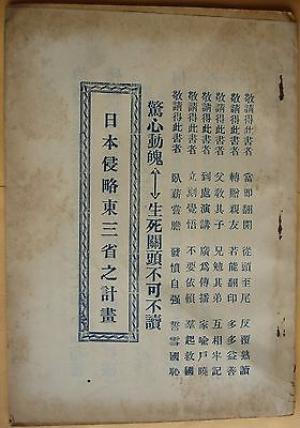 敬請得此書者 當即翻開 從頭至尾 反覆熟讀
敬請得此書者 轉贈親友 若能翻印 多多益善
敬請得此書者 父教其子 兄勉其弟 互相牢記
敬請得此書者 到處演講 廣爲傳播 家喻戶曉
敬請得此書者 立刻覺悟 不要依賴 羣起救國
敬請得此書者 臥薪嘗膽 發憤自强 誓雪國恥
驚心動魄←→生死關頭不可不讀
日本侵略東三省之計畫